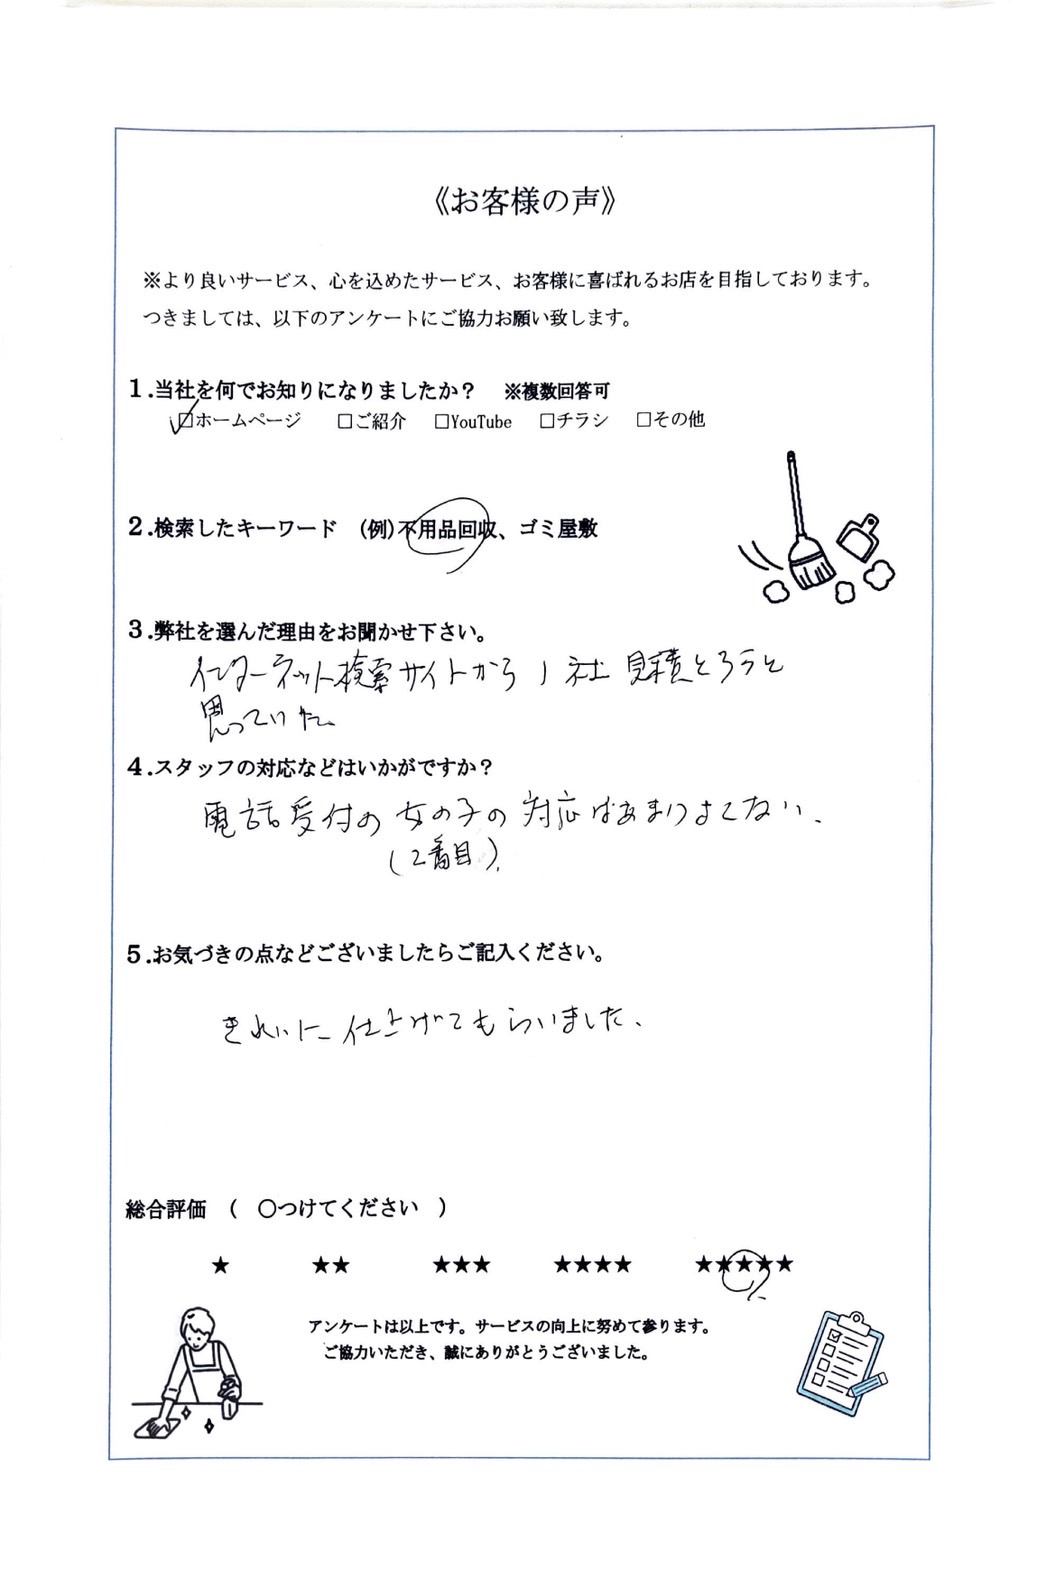 《お客様の声》
※より良いサービス、心を込めたサービス、お客様に喜ばれるお店を目指しております。
つきましては、以下のアンケートにご協力お願い致します。
1.当社を何でお知りになりましたか？　※複数回答可
☑ホームページ　□ご紹介　□YouTube　□チラシ　□その他
2.検索したキーワード　(例)不用品回収、ゴミ屋敷
3.弊社を選んだ理由をお聞かせ下さい。
インターネット検索サイトから1社見積とろうと
思っていた。
4.スタッフの対応などはいかがですか？
電話受付の女の子の対応はあまりよくない、
(2番目)
5.お気づきの点などございましたらご記入ください。
きれいに仕上げてもらいました、
総合評価　(　〇つけてください　)
★　★★　★★★　★★★★　★★★★★
アンケートは以上です。サービスの向上に努めて参ります。
ご協力いただき、誠にありがとうございました。